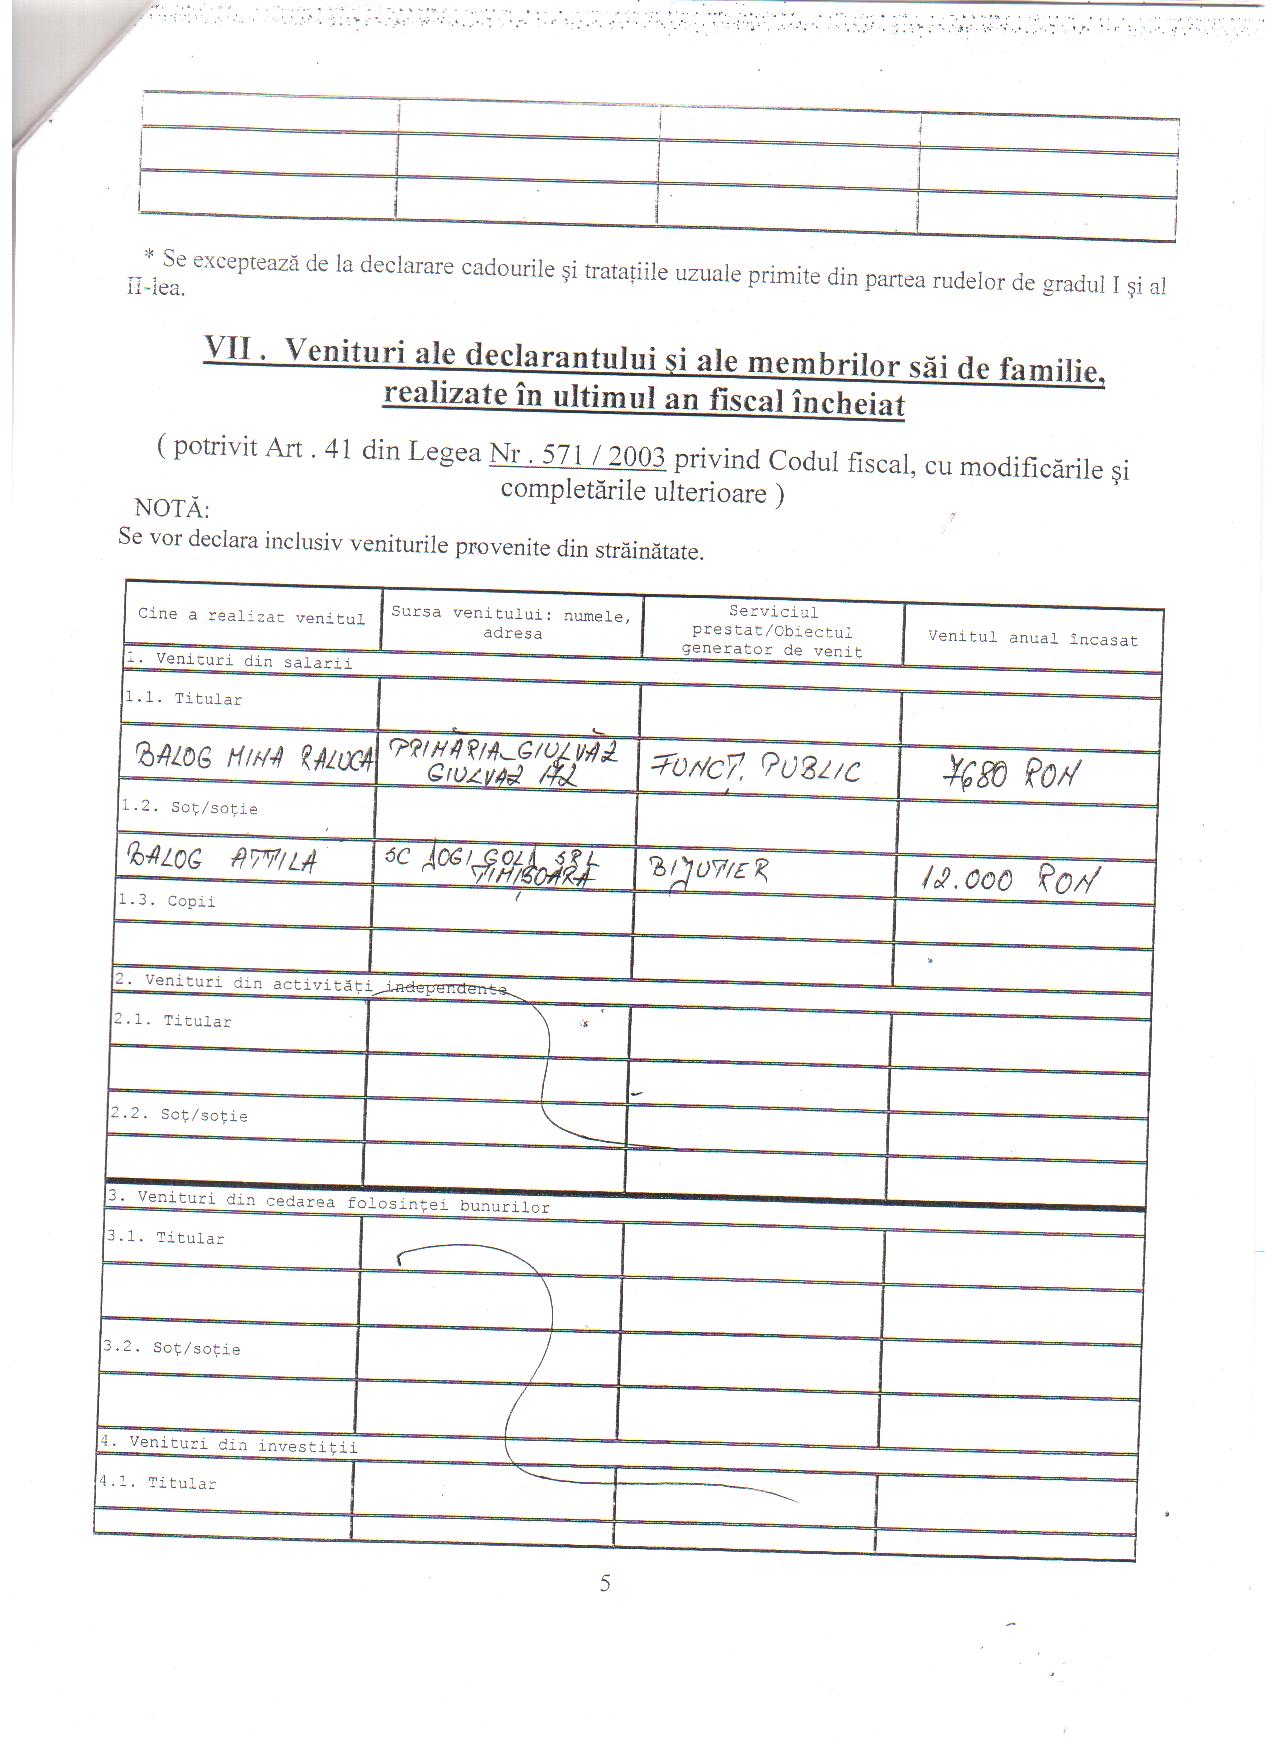 * Se exceptează de la declarare cadourile şi trataţiile uzuale primite din partea rudelor de gradul I şi al
II-lea.
VII . Venituri ale declarantului şi ale membrilor săi de familie,
realizate în ultimul an fiscal încheiat
( potrivit Art . 41 din Legea Nr . 571 / 2003 privind Codul fiscal, cu modificările şi
completările ulterioare )
NOTĂ:
Se vor declara inclusiv veniturile provenite din străinătate.
Cine a realizat venitul
Sursa venitului: numele,
adresa
Serviciul
prestat/Obiectul
generator de venit
Venitul anual încasat
1. Venituri din salarii
1.1. Titular
BALOG MINA RALUCA
PRIMĂRIA GIULVĂZ
GIULVAZ 172
FUNCŢ. PUBLIC
7680 RON
1.2. Soţ/soţie
BALOG ATTILA
SC GOLD SRL
TIMIŞOARA
BIJUTIER
12.000 RON
1.3. Copii
2. Venituri din activităţi independente
2.1. Titular
2.2. Soţ/soţie
3. Venituri din cedarea folosinţei bunurilor
3.1. Titular
3.2. Soţ/soţie
4. Venituri din investiţii
4.1. Titular
5